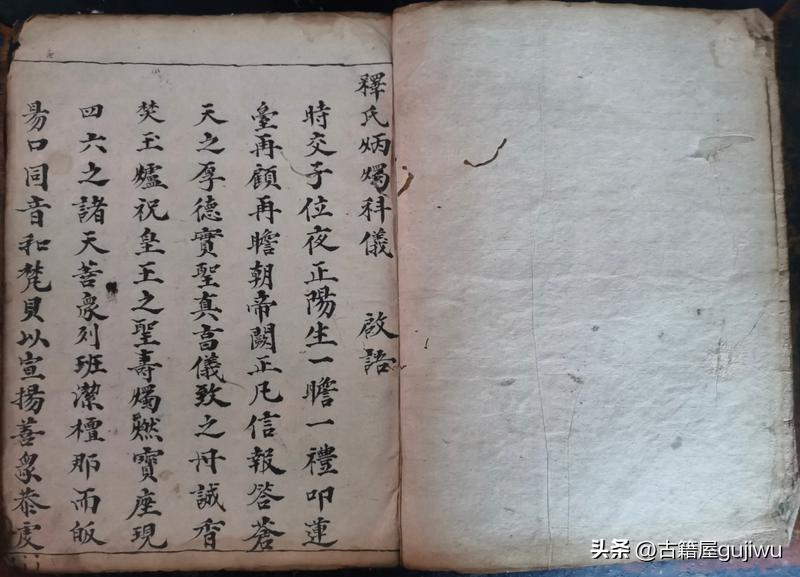 釋氏炳燭科儀 啟語
時交子位夜正陽生一瞻一禮叩蓮
臺再顧再瞻朝帝闕正凡信報答蒼
天之厚德實聖真高儀致之丹誠香
焚玉爐祝皇王之聖壽燭燃寶座現
四六之諸天善眾列班潔檀那而皈
昜口同音和梵貝以宣揚善眾恭虔
头条 @古籍屋gujiwu